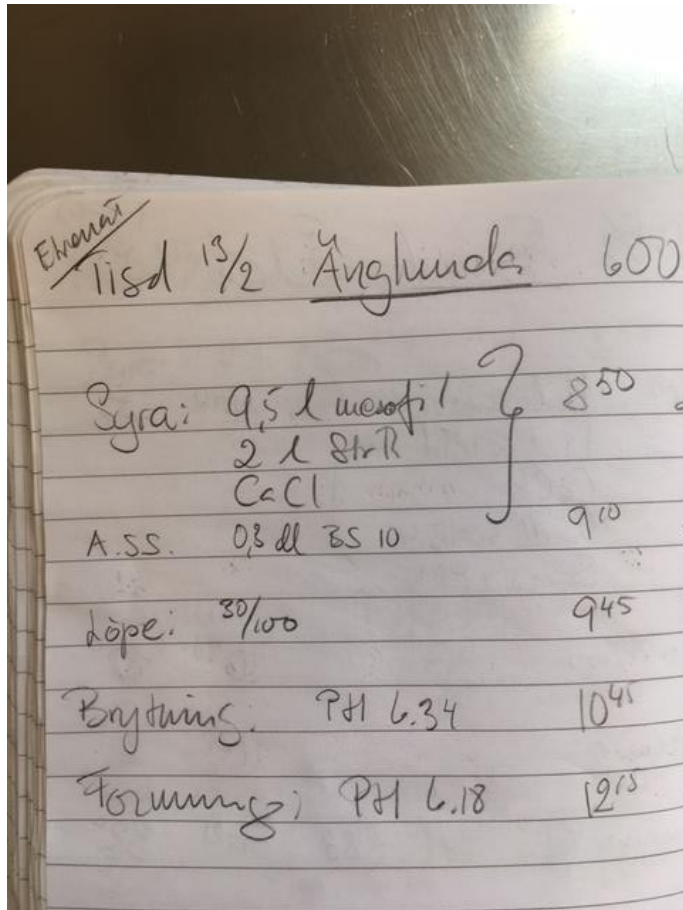 Tisd 13/2 Änglunda 600
Syra: 9,5 l mesofil } 8 50
2 l StrR
CaCl
A.SS. 0,3 dl BS 10 9 10
Löpe: 30/100 9 45
Brytning: PH 6.34 10 45
Formning: PH 6.18 12 15